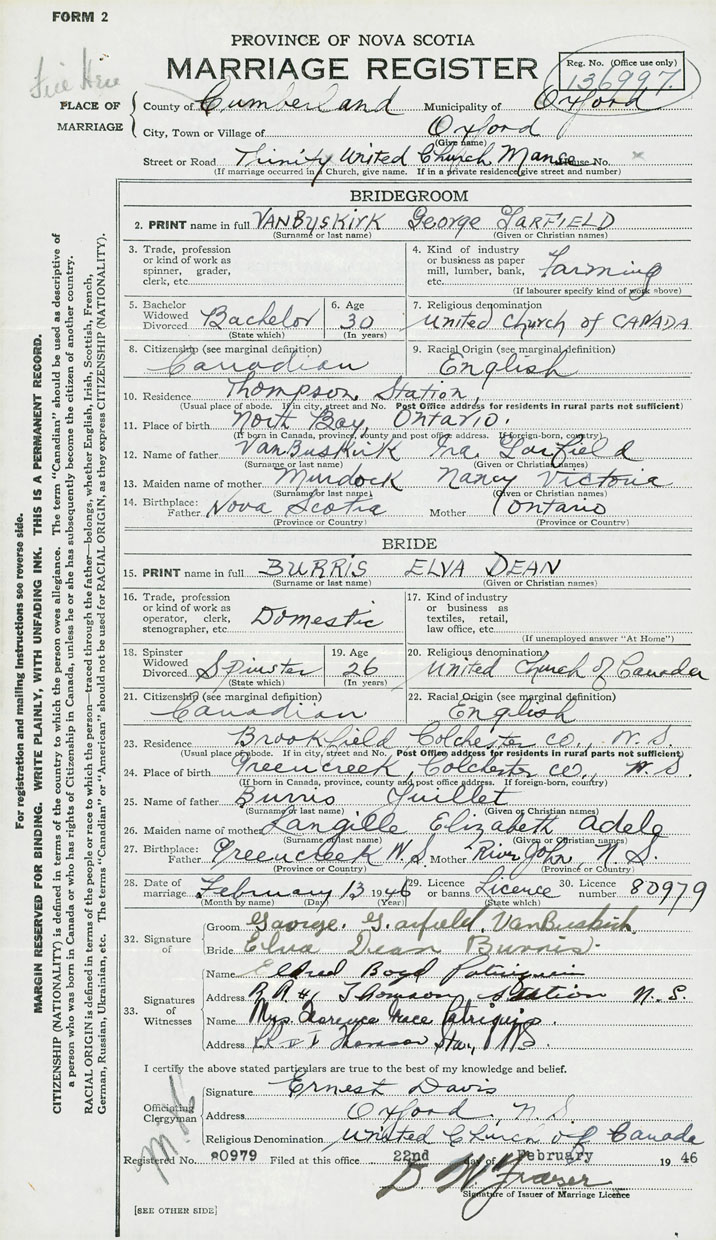 FORM 2
PROVINCE OF NOVA SCOTIA
MARRIAGE REGISTER
Reg. No. (Office use only)
136997
PLACE OF MARRIAGE
County of Cumberland Municipality of Oxford
City, Town or Village of Oxford
(Give name)
Street or Road Trinity United Church Manse House No. x
(If marriage occurred in a Church, give name. If in a private residence give street and number)
BRIDEGROOM
2. PRINT name in full VANBUSKIRK George GARFIELD
(Surname or last name) (Given or Christian names)
3. Trade, profession or kind of work as spinner, grader, clerk, etc.
4. Kind of industry or business as paper mill, lumber, bank, etc. Farming
(If labourer specify kind of work above)
5. Bachelor Widowed Divorced Bachelor (State which)
6. Age 30 (In years)
7. Religious denomination United Church of CANADA
8. Citizenship (see marginal definition) Canadian
9. Racial Origin (see marginal definition) English
10. Residence Thompson Station,
(Usual place of abode. If in city, street and No. Post Office address for residents in rural parts not sufficient)
11. Place of birth North Bay, Ontario.
(If born in Canada, province, county and post office address. If foreign-born, country)
12. Name of father VanBuskirk Ira Garfield
(Surname or last name) (Given or Christian names)
13. Maiden name of mother Murdock Nancy Victoria
(Surname or last name) (Given or Christian names)
14. Birthplace: Father Nova Scotia Mother Ontario
(Province or Country) (Province or Country)
BRIDE
15. PRINT name in full BURRIS ELVA DEAN
(Surname or last name) (Given or Christian names)
16. Trade, profession or kind of work as operator, clerk, stenographer, etc. Domestic
17. Kind of industry or business as textiles, retail, law office, etc.
(If unemployed answer "At Home")
18. Spinster Widowed Divorced Spinster (State which)
19. Age 26 (In years)
20. Religious denomination United Church of Canada
21. Citizenship (see marginal definition) Canadian
22. Racial Origin (see marginal definition) English
23. Residence Brookfield Colchester Co., N.S.
(Usual place of abode. If in city, street and No. Post Office address for residents in rural parts not sufficient)
24. Place of birth Greencreek, Colchester Co., N.S.
(If born in Canada, province, county and post office address. If foreign-born, country)
25. Name of father Burris
(Surname or last name) (Given or Christian names)
26. Maiden name of mother Langille Elizabeth Adele
(Surname or last name) (Given or Christian names)
27. Birthplace: Father Greencreek N.S. Mother River John, N.S.
(Province or Country) (Province or Country)
28. Date of marriage February 13 1946
(Month by name) (Day) (Year)
29. Licence or banns Licence (State which)
30. Licence number 80979
32. Signature of
Groom George. Garfield. VanBuskirk
Bride Elva Dean Burris.
33. Signatures of Witnesses
Name Eldred Boyd Patriquin
Address R.R #1 Thomson Station N.S.
Name Mrs. Clarence Patriquin.
Address Thomson Sta., N.S.
I certify the above stated particulars are true to the best of my knowledge and belief.
Officiating Clergyman
Signature Ernest Davis
Address Oxford, N.S.
Religious Denomination United Church of Canada
Registered No. 80979 Filed at this office 22nd day of February 19 46
D. W. Fraser
Signature of Issuer of Marriage Licence
[SEE OTHER SIDE]
For registration and mailing instructions see reverse side.
MARGIN RESERVED FOR BINDING. WRITE PLAINLY, WITH UNFADING INK. THIS IS A PERMANENT RECORD.
CITIZENSHIP (NATIONALITY) is defined in terms of the country to which the person owes allegiance. The term "Canadian" should be used as descriptive of
a person who was born in Canada or who has rights of Citizenship in Canada, unless he or she has subsequently become the citizen of another country.
RACIAL ORIGIN is defined in terms of the people or race to which the person—traced through the father—belongs, whether English, Irish, Scottish, French,
German, Russian, Ukrainian, etc. The terms "Canadian" or "American" should not be used for RACIAL ORIGIN, as they express CITIZENSHIP (NATIONALITY).